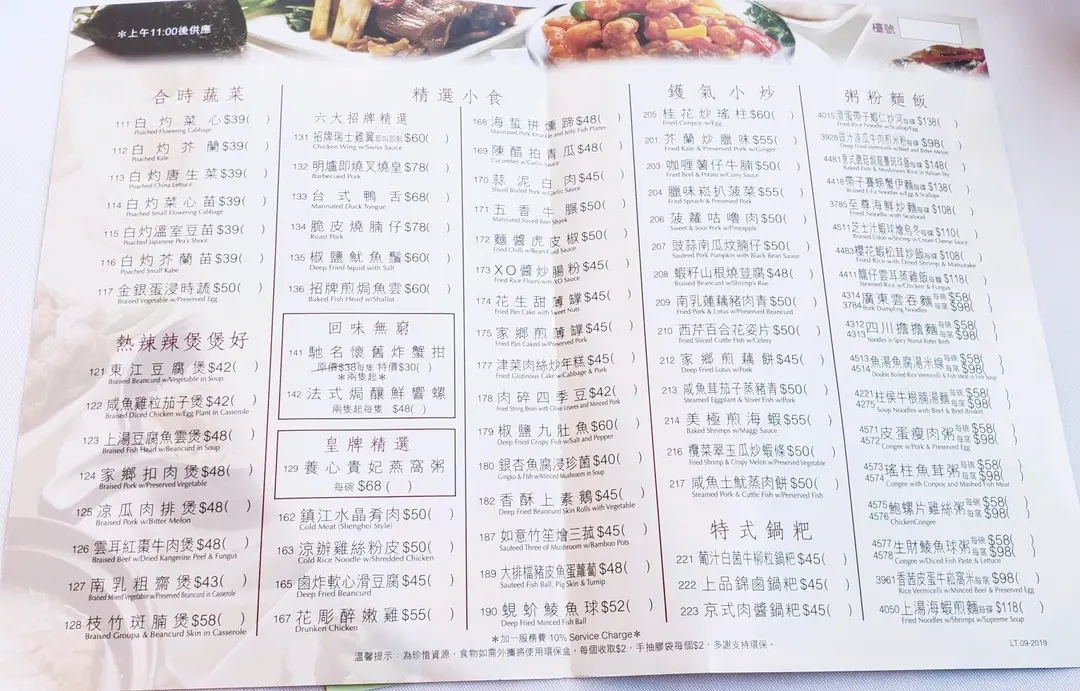 ＊上午11:00後供應
檯號
合時蔬菜
111 白灼菜心 $39( )
Poached Flowering Cabbage
112 白灼芥蘭 $39( )
Poached Kale
113 白灼唐生菜 $39( )
Poached China Lettuce
114 白灼菜心苗 $39( )
Poached Small Flowering Cabbage
115 白灼溫室豆苗 $39( )
Poached Japanese Pea's Shoot
116 白灼芥蘭苗 $39( )
Poached Small Kale
117 金銀蛋浸時蔬 $50( )
Braised Vegetable w/Preserved Egg
熱辣辣煲煲好
121 東江豆腐煲 $42( )
Braised Beancurd w/Vegetable in Soup
122 咸魚雞粒茄子煲 $42( )
Braised Diced Chicken w/Egg Plant in Casserole
123 上湯豆腐魚雲煲 $48( )
Braised Fish Head w/Beancurd in Soup
124 家鄉扣肉煲 $48( )
Braised Pork w/Preserved Vegetable
125 涼瓜肉排煲 $48( )
Braised Pork w/Bitter Melon
126 雲耳紅棗牛肉煲 $48( )
Braised Beef w/Dried Kangerine Peef & Fungus
127 南乳粗齋煲 $43( )
Braised Mixed Vegetable w/Preserved Beancurd in Casserole
128 枝竹斑腩煲 $58( )
Braised Groupa & Beancurd Skin in Casserole
精選小食
六大招牌精選
131 招牌瑞士雞翼 即叫即制 $60( )
Chicken Wing w/Swiss Sauce
132 明爐即燒叉燒皇 $78( )
Barbecued Pork
133 台式鴨舌 $68( )
Marinated Duck Tongue
134 脆皮燒腩仔 $78( )
Roast Pork
135 椒鹽魷魚鬚 $60( )
Deep Fried Squid with Salt
136 招牌煎焗魚雲 $60( )
Baked Fish Head w/Shallot
回味無窮
141 馳名懷舊炸蟹拑
原價$38每隻 特價$30( )
＊兩隻起＊
142 法式焗釀鮮響螺
兩隻起每隻 $48( )
皇牌精選
129 養心貴妃燕窩粥
每碗 $68 ( )
162 鎮江水晶肴肉 $50( )
Cold Meat (Shenghei Style)
163 涼辦雞絲粉皮 $50( )
Cold Rice Noodle w/Shredded Chicken
165 鹵炸軟心滑豆腐 $45( )
Deep Fried Beancurd
167 花彫醉嫩雞 $55( )
Drunken Chicken
168 海蜇拼燻蹄 $48( )
Marinated Pork Knuckle and Jelly Fish Platter
169 陳醋拍青瓜 $48( )
Cucumber w/Garlic Sauce
170 蒜泥白肉 $45( )
Sliced Boiled Pork w/Garlic Sauce
171 五香牛𦟌 $50( )
Marinated Sliced Beef Shank
172 麵醬虎皮椒 $50( )
Fried Chilli w/Bean Curd Sauce
173 XO醬炒腸粉 $45( )
Fried Rice Flours with XO Sauce
174 花生甜薄罉 $45( )
Fried Pan Cake with Sweet Nuts
175 家鄉煎薄罉 $45( )
Fried Pan Caked w/Preserved Pork
177 津菜肉絲炒年糕 $45( )
Fried Glutinous Cake w/Cabbage & Pork
178 肉碎四季豆 $42( )
Fried String Bean with Olive Leaves and Minced Pork
179 椒鹽九肚魚 $60( )
Deep Fried Crispy Fish w/Salt and Pepper
180 銀杏魚腐浸珍菌 $40( )
Gingko & Fish w/Minced Mushroom in Soup
182 香酥上素鵝 $45( )
Deep Fried Beancurd Skin Rolls with Vegetable
187 如意竹笙燴三菰 $45( )
Sauteed Three of Mushroom w/Bamboo Pots
189 大排檔豬皮魚蛋蘿蔔 $48( )
Sauteed Fish Ball, Pig Skin & Turnip
190 蜆蚧鯪魚球 $52( )
Deep Fried Minced Fish Ball
鑊氣小炒
205 桂花炒瑤柱 $60( )
Fried Conpoy w/Egg
201 芥蘭炒臘味 $55( )
Fried Kale & Preserved Pork w/Ginger
203 咖喱薯仔牛腩 $50( )
Fried Beef & Potato w/Curry Sauce
204 臘味崧扒菠菜 $55( )
Fried Spinach & Preserved Pork
206 菠蘿咕嚕肉 $50( )
Sweet & Sour Pork w/Pineapple
207 豉蒜南瓜炆腩仔 $50( )
Sauteed Pork Pumpkin with Black Bean Sauce
208 蝦籽山根燒豆腐 $48( )
Braised Beancurd w/Shrimp's Roe
209 南乳蓮藕豬肉青 $50( )
Fried Pork & Lotus w/Preserved Beancurd
210 西芹百合花姿片 $50( )
Fried Sliced Cuttle Fish w/Celery
212 家鄉煎藕餅 $45( )
Fried Deep Lotus w/Pork
213 咸魚茸茄子蒸豬青 $50( )
Steamed Eggplant & Silver Fish w/Pork
214 美極煎海蝦 $55( )
Baked Shrimps w/Maggi Sauce
216 欖菜翠玉瓜炒蝦條 $50( )
Fried Shrimp & Crispy Melon w/Preserved Vegetable
217 咸魚土魷蒸肉餅 $50( )
Steamed Pork & Cuttle Fish w/Perserved Fish
特式鍋粑
221 葡汁白菌牛柳粒鍋粑 $45( )
222 上品錦鹵鍋粑 $45( )
223 京式肉醬鍋粑 $45( )
粥粉麵飯
4015 滑蛋帶子蝦仁炒河 每碟 $138( )
Fried Rice Noodle w/Scallop/Egg
3928 豉汁涼瓜牛肉煎米粉 每碟 $98( )
Deep Fried Vermicelli w/Beef and Bitter Melon
4481 意式脆菇焗龍脷斑球飯 每碟 $148( )
Baked Fish & Mushroom Rice in Italian Sty
4418 帶子賽螃蟹伊麵 每碟 $138( )
Braised E-Fu Noodles w/Egg & Scallops
3785 至尊海鮮炒麵 每碟 $108( )
Fried Noodle with Seafood
4511 芝士汁蝦球燴烏冬 每碟 $110( )
Braised Udon w/Shrimp in Cream Cheese Sauce
4483 櫻花蝦松茸炒飯 每碟 $108( )
Fried Rice with Dried Shrimp & Matsutake
4411 龍仔雲耳蒸雞飯 每碟 $118( )
Steamed Rice w/Chicken & Fungus
4314 廣東雲吞麵 每碗 $58( )
3784 Pork Dumpling Noodles 每窩 $98( )
4312 四川擔擔麵 每碗 $58( )
4313 Noodles in Spicy Peanut Butter Broth 每窩 $98( )
4513 魚湯魚腐湯米線 每碗 $58( )
4514 Double Boiled Rice Vermicelli & Fish Meat in Fish Soup 每窩 $98( )
4221 柱侯牛根腩湯麵 每碗 $58( )
4275 Soup Noodles with Beef & Beef Brisket 每窩 $98( )
4571 皮蛋瘦肉粥 每碗 $58( )
4572 Congee w/Pork & Preserved Egg 每窩 $98( )
4573 瑤柱魚茸粥 每碗 $58( )
4574 Congee with Conpoy and Mashed Fish Meat 每窩 $98( )
4575 鮑螺片雞絲粥 每碗 $58( )
4576 ChickenCongee 每窩 $98( )
4577 生財鯪魚球粥 每碗 $58( )
4578 Congee w/Diced Fish Paste & Lettuce 每窩 $98( )
3961 香茜皮蛋牛崧窩米 每窩 $98( )
Rice Vermicelli w/Minced Beef & Preserved Egg
4050 上湯海蝦煎麵 每碟 $118( )
Fried Noodles w/Shrimps w/Supreme Soup
＊加一服務費 10% Service Charge＊
溫馨提示：為珍惜資源，食物如需外攜將使用環保盒，每個收取$2，手抽膠袋每個$2，多謝支持環保。
LT.09-2019